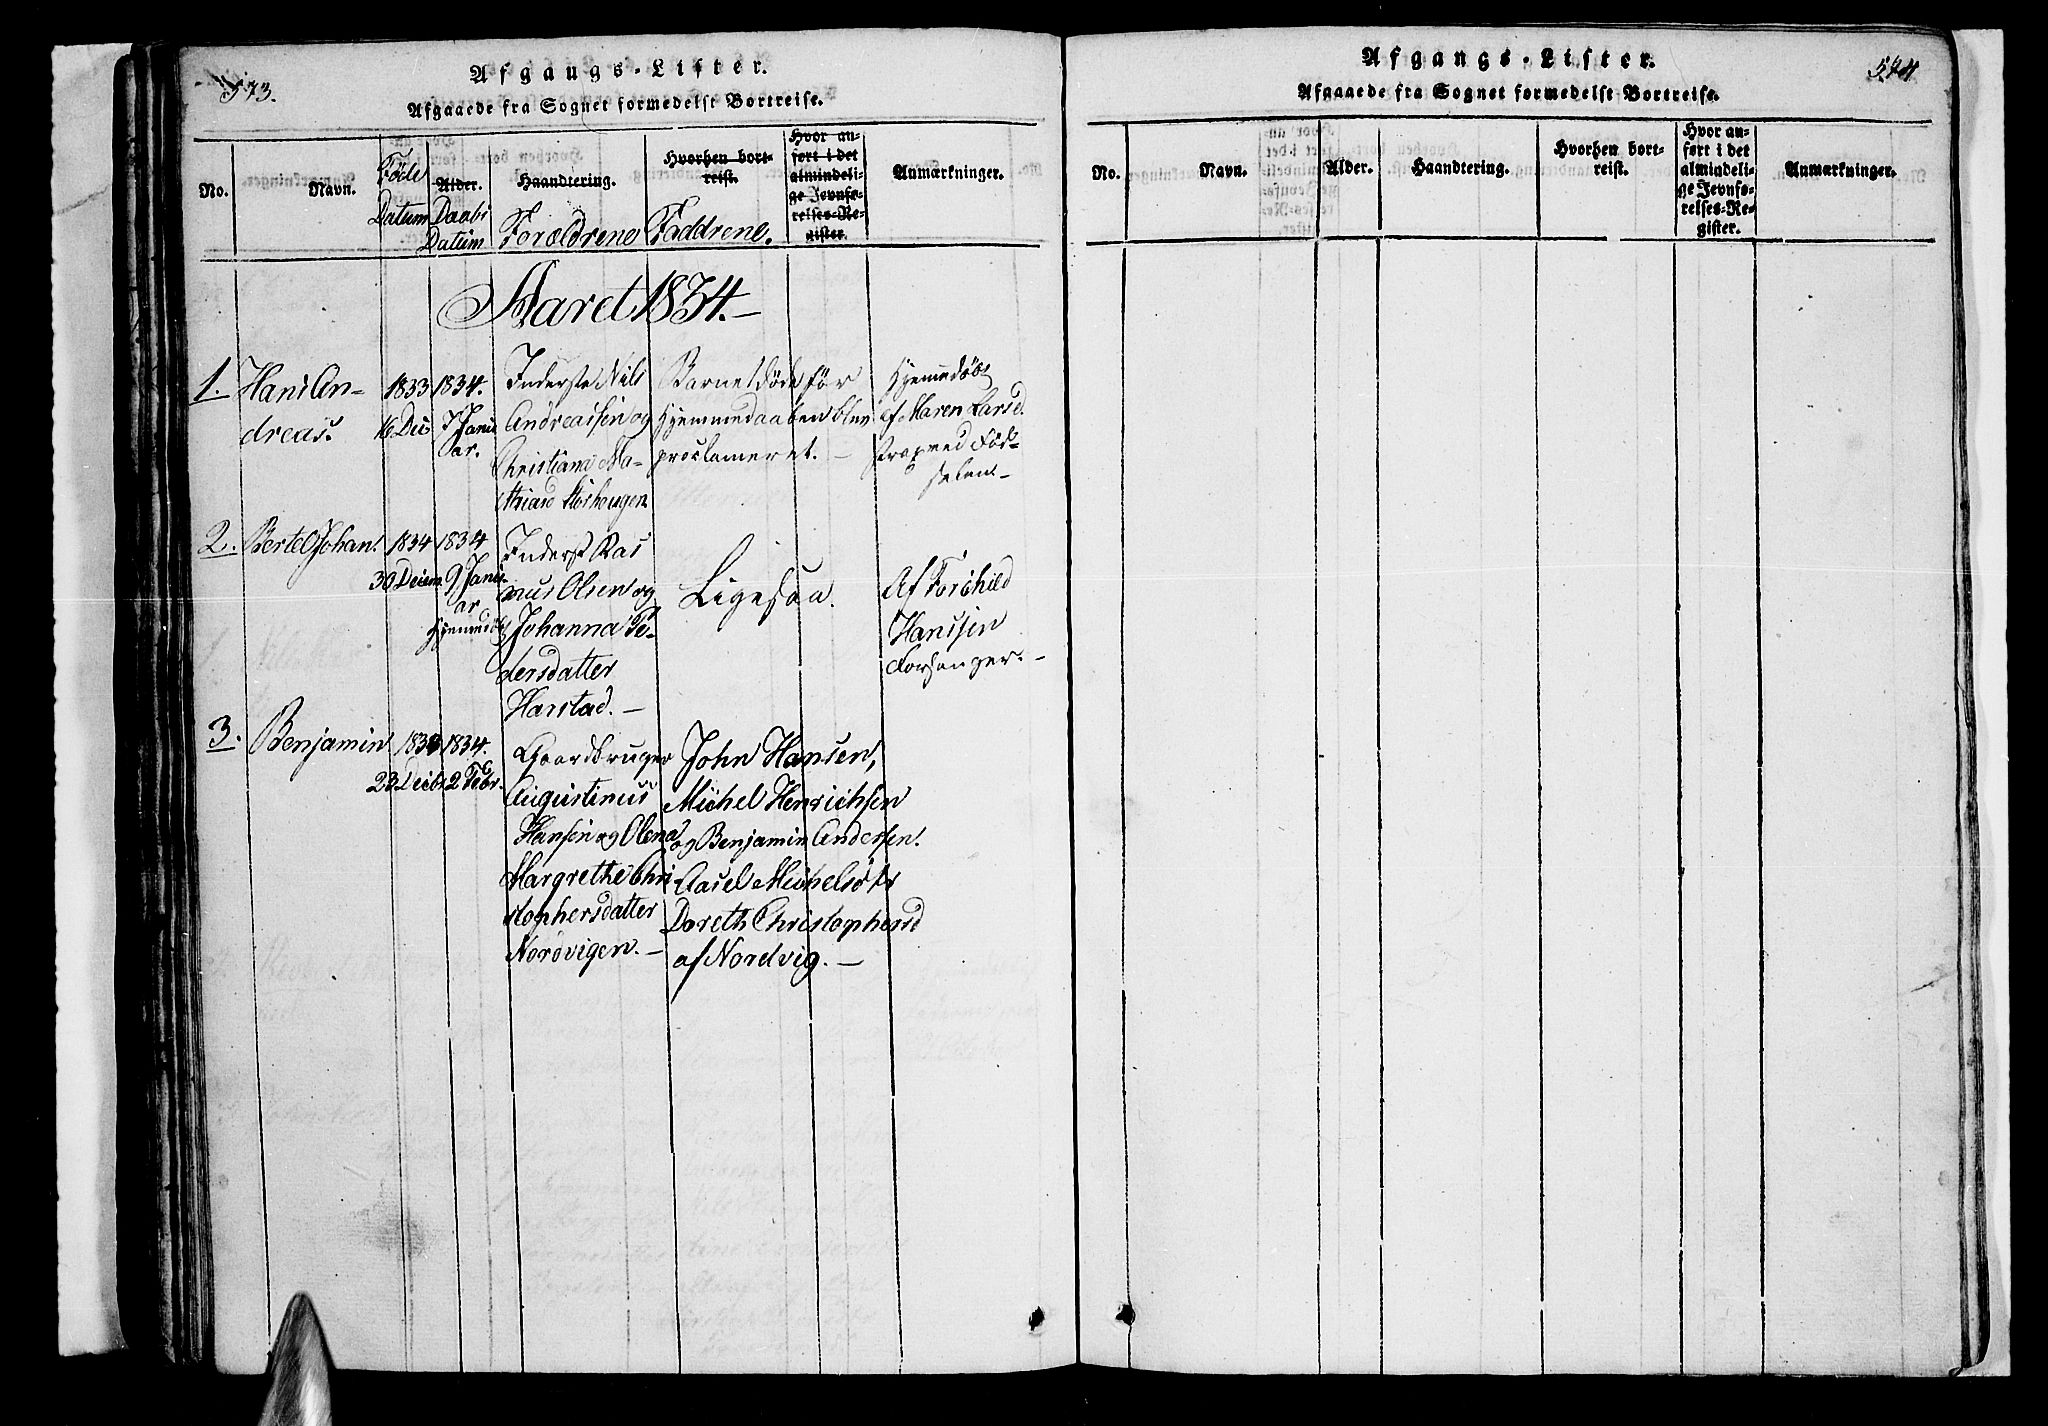 573.
Afgangs-Lister.
Afgaaede fra Sognet formedelst Bortreise.
No.
Navn.
Föde
Datum
Alder.
Daabs
Datum
Haandtering.
Forældrene
Hvorhen bort-
reist.
Faddrene.
Hvor an-
ført i det
almindeli-
ge Jevnfø-
relses-Re-
gister.
Anmærkninger.
Aaret 1834.—
1.
Hans An-
dreas.
1833
16 Dec
1834.
7 Janu-
ar.
Inderste Nils
Andreassen og
Christiana Ma-
thiasd
Barnet döde för
Hjemmedaaben blev
proclameret. —
Hjemmedöbt
af Maren Larsd.
strax ved Föd-
selen.—
2.
Bertel Johan.
1834
30 Decem.
1834
9 Janu-
ar
Hjemmedöbt
Inderst Ras
mus Olsen og
Johanna Pe-
dersdatter
Harstad. —
Ligesaa.
Af Torchild
Hanssen
Forhanger. —
3.
Benjamin
1833
23 Decbr
1834.
2 Febr.
Gaardbruger
Augustinus
Hansen og Olena
Margrethe Chri
stophersdatter
Nordvigen. —
John Hansen,
Michel Henrichsen
og Benjamin Andersen.
Aasel Michelsdtr
Doreth Christophersd
af Nordvig. —
574
Afgangs-Lister.
Afgaaede fra Sognet formedelst Bortreise.
No.
Navn.
Alder.
Haandtering.
Hvorhen bort-
reist.
Hvor an-
ført i det
almindeli-
ge Jevnfø-
relses-Re-
gister.
Anmærkninger.